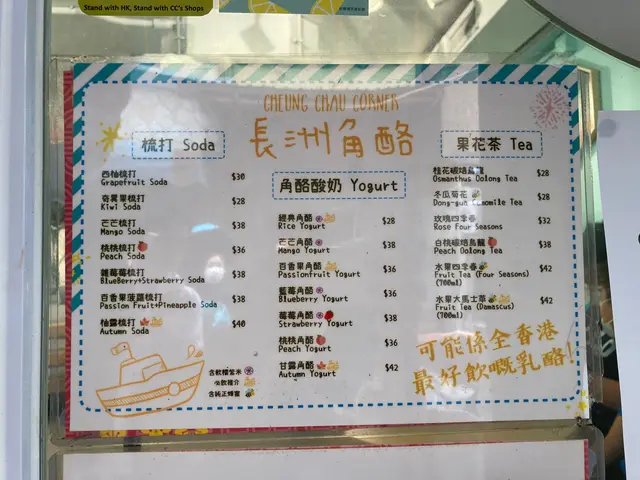 Stand with HK, Stand with CC's Shops
CHEUNG CHAU CORNER
長洲角酪
梳打 Soda
西柚梳打 $30
Grapefruit Soda
奇異果梳打 $28
Kiwi Soda
芒芒梳打 $38
Mango Soda
桃桃梳打 $38
Peach Soda
雜莓莓梳打 $38
BlueBerry+Strawberry Soda
百香果菠蘿梳打 $38
Passion Fruit+Pineapple Soda
柚露梳打 $40
Autumn Soda
角酪酸奶 Yogurt
經典角酪 $28
Rice Yogurt
芒芒角酪 $38
Mango Yogurt
百香果角酪 $36
Passionfruit Yogurt
藍莓角酪 $36
Blueberry Yogurt
莓莓角酪 $38
Strawberry Yogurt
桃桃角酪 $36
Peach Yogurt
甘露角酪 $42
Autumn Yogurt
果花茶 Tea
桂花碳焙烏龍 $28
Osmanthus Oolong Tea
冬瓜菊花 $28
Dong-gua Camomile Tea
玫瑰四季春 $32
Rose Four Seasons
白桃碳焙烏龍 $38
Peach Oolong Tea
水果四季春 $42
Fruit Tea (Four Seasons)
(700ml)
水果大馬士革 $42
Fruit Tea (Damascus)
(700ml)
含軟糯紫米
含純正蜂蜜
可能係全香港
最好飲嘅乳酪!